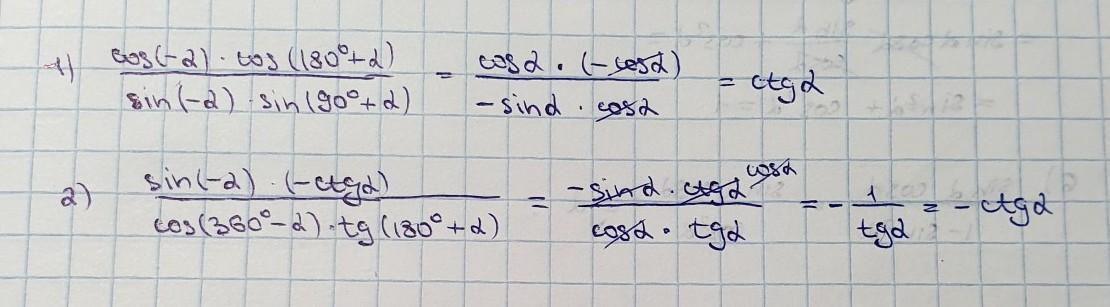 1) cos(-α) · cos(180°+α) / sin(-α) · sin(90°+α) = cosα · (-cosα) / -sinα · cosα = ctgα
2) sin(-α) · (-ctgα) / cos(360°-α) · tg(180°+α) = -sinα · ctgα cosα / cosα · tgα = - 1 / tgα = - ctgα